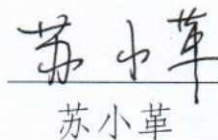 苏小革
苏小革